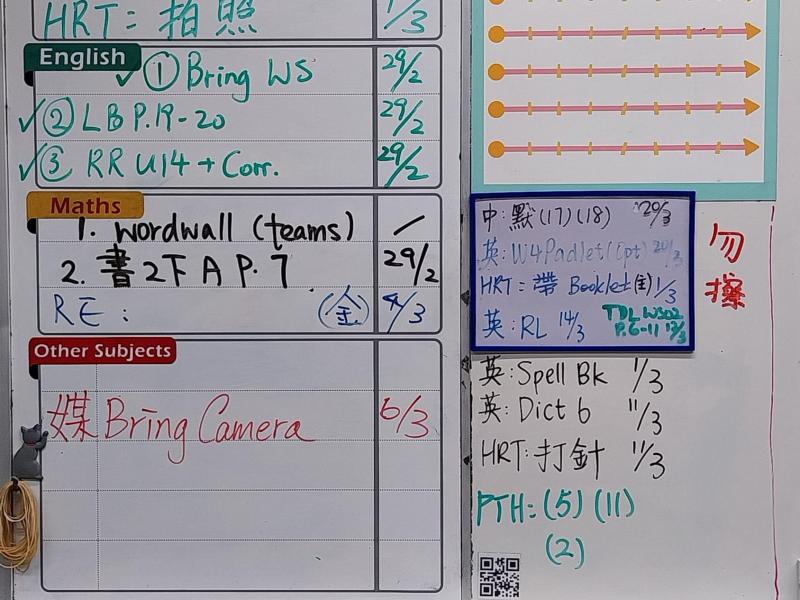 HRT: 拍照 1/3
English
① Bring WS 29/2
② LB P.19-20 29/2
③ RR U14 + Corr. 29/2
Maths
1. wordwall (teams) /
2. 書2下A P.7 29/2
RE: (金) 4/3
Other Subjects
媒 Bring Camera 6/3
中: 默(17)(18) 20/3
英: W4 Padlet (Opt) 20/3
HRT: 帶 Booklet 1/3
英: RL 14/3
TDL WS02
P.6-11 12/3
勿擦
英: Spell Bk 1/3
英: Dict 6 11/3
HRT: 打針 11/3
PTH: (5) (11)
(2)